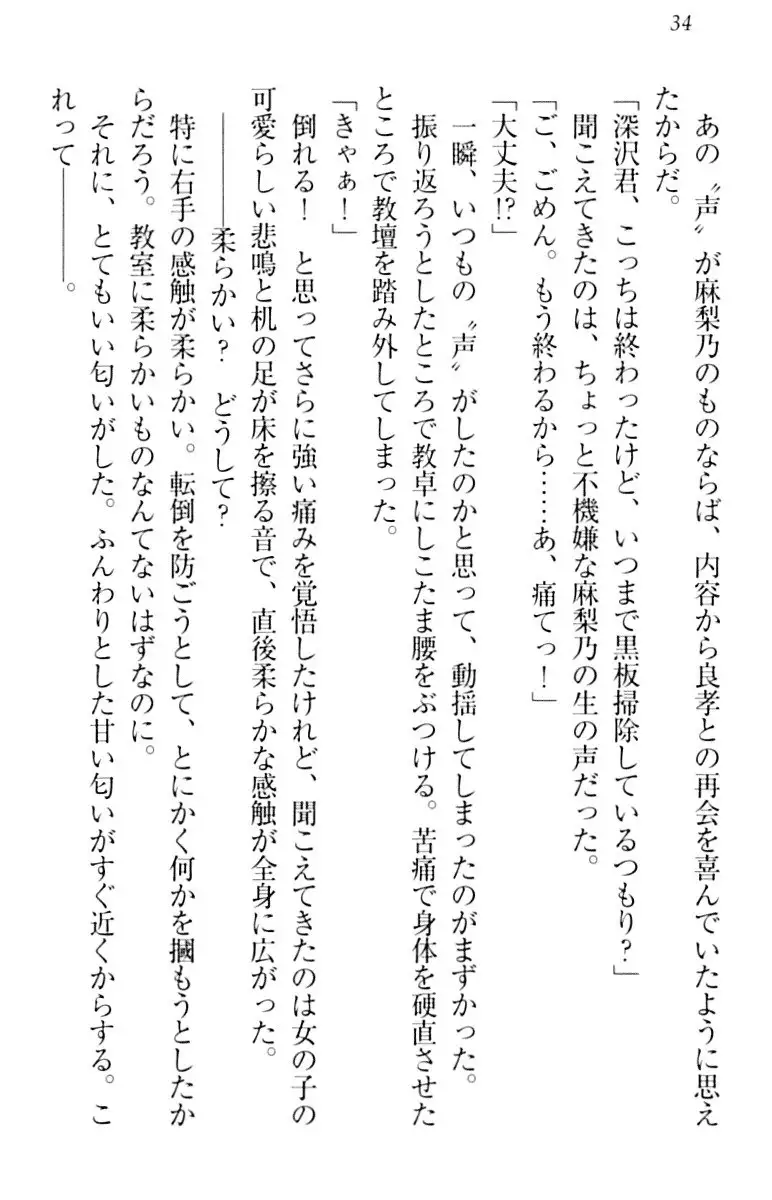 34
あの〝声〟が麻梨乃のものならば、内容から良孝との再会を喜んでいたように思え
たからだ。
「深沢君、こっちは終わったけど、いつまで黒板掃除しているつもり？」
聞こえてきたのは、ちょっと不機嫌な麻梨乃の生の声だった。
「ご、ごめん。もう終わるから……あ、痛てっ！」
「大丈夫!?」
一瞬、いつもの〝声〟がしたのかと思って、動揺してしまったのがまずかった。
振り返ろうとしたところで教卓にしこたま腰をぶつける。苦痛で身体を硬直させた
ところで教壇を踏み外してしまった。
「きゃぁ！」
倒れる！　と思ってさらに強い痛みを覚悟したけれど、聞こえてきたのは女の子の
可愛らしい悲鳴と机の足が床を擦る音で、直後柔らかな感触が全身に広がった。
――――柔らかい？　どうして？
特に右手の感触が柔らかい。転倒を防ごうとして、とにかく何かを摑もうとしたか
らだろう。教室に柔らかいものなんてないはずなのに。
それに、とてもいい匂いがした。ふんわりとした甘い匂いがすぐ近くからする。こ
れって――――。